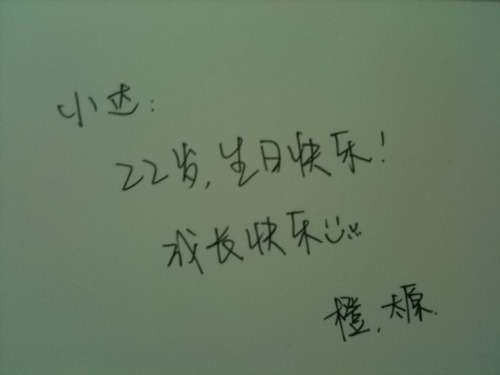 小达:
22岁,生日快乐!
成长快乐
橙,太原.